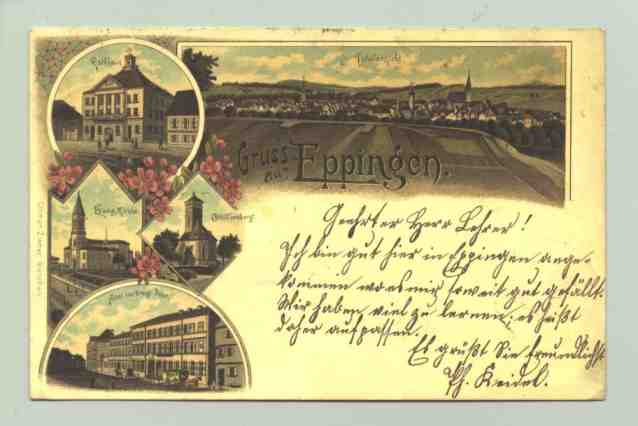 Rathhaus
Totalansicht
Gruss
aus
Eppingen.
Evang. Kirche
Ottilienberg
Geehrter Herr Lehrer!
Ich bin gut hier in Eppingen ange-
kommen wo es mir soweit gut gefällt.
Wir haben viel zu lernen; es heißt
daher aufpassen.
Es grüßt Sie freundlichst
Ph. Keidel.